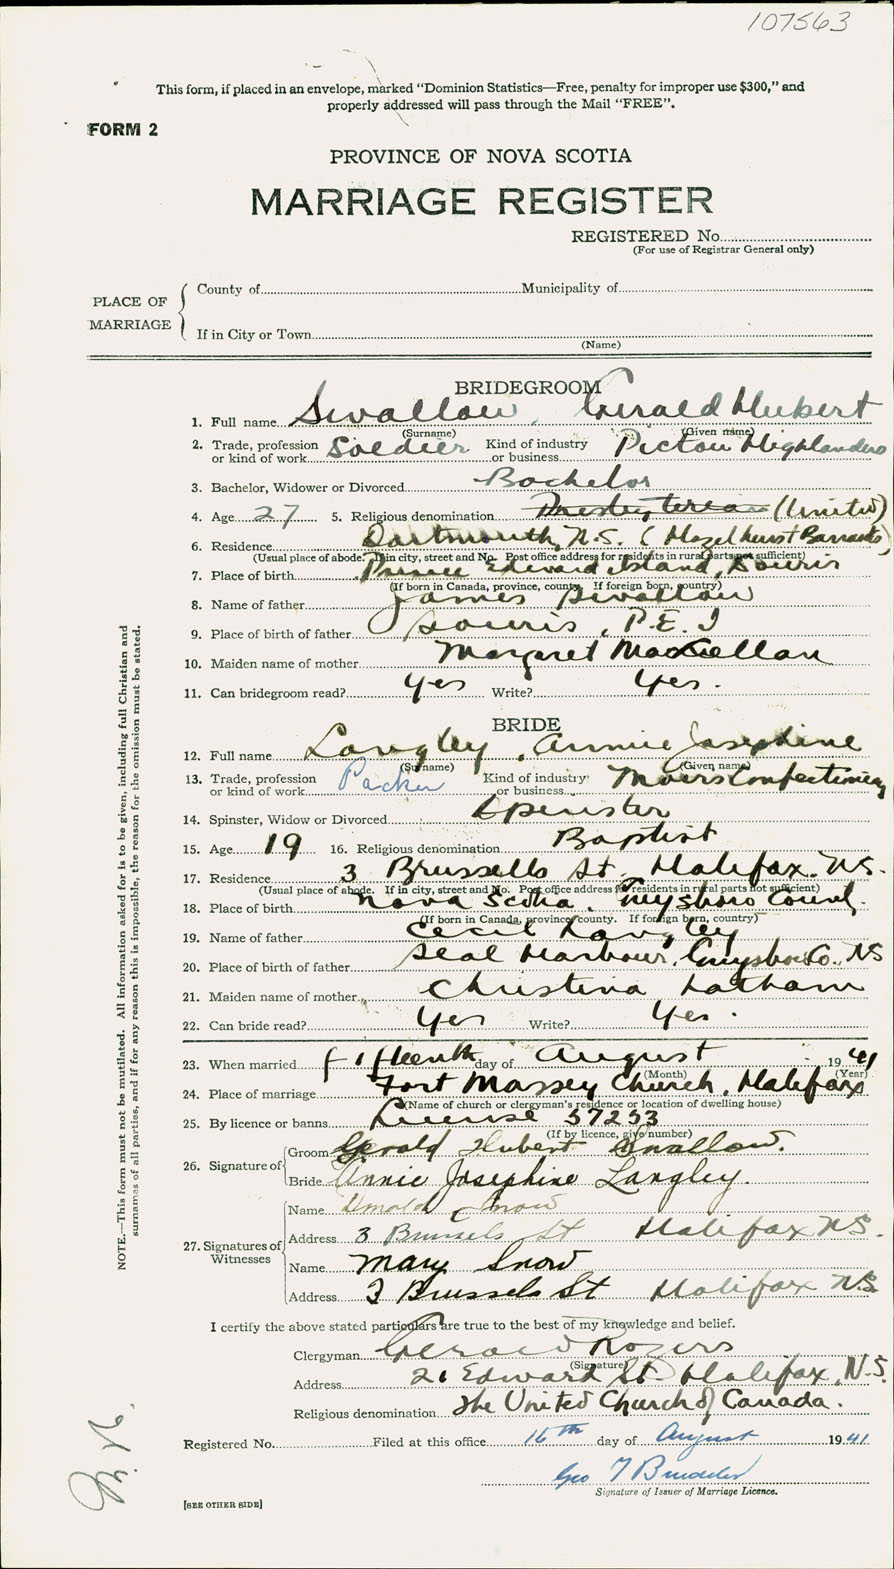 107563
This form, if placed in an envelope, marked "Dominion Statistics—Free, penalty for improper use $300," and
properly addressed will pass through the Mail "FREE".
FORM 2
PROVINCE OF NOVA SCOTIA
MARRIAGE REGISTER
REGISTERED No.
(For use of Registrar General only)
PLACE OF MARRIAGE
County of Municipality of
If in City or Town
(Name)
BRIDEGROOM
1. Full name Swallow, Gerald Hubert
(Surname) (Given name)
2. Trade, profession or kind of work Soldier Kind of industry or business Pictou Highlanders
3. Bachelor, Widower or Divorced Bachelor
4. Age 27 5. Religious denomination Presbyterian (United)
6. Residence Dartmouth, N.S. (Hazelhurst Barracks)
(Usual place of abode. If in city, street and No. Post office address for residents in rural parts not sufficient)
7. Place of birth Prince Edward Island, Souris
(If born in Canada, province, county. If foreign born, country)
8. Name of father James Swallow
9. Place of birth of father Souris, P.E.I
10. Maiden name of mother Margaret MacLellan
11. Can bridegroom read? Yes Write? Yes.
BRIDE
12. Full name Langley, Annie Josephine
(Surname) (Given name)
13. Trade, profession or kind of work Packer Kind of industry or business Moirs Confectionery
14. Spinster, Widow or Divorced Spinster
15. Age 19 16. Religious denomination Baptist
17. Residence 3 Brussells St, Halifax, N.S.
(Usual place of abode. If in city, street and No. Post office address for residents in rural parts not sufficient)
18. Place of birth Nova Scotia. Guysboro County.
(If born in Canada, province, county. If foreign born, country)
19. Name of father Cecil Langley
20. Place of birth of father Seal Harbour, Guysboro Co., NS
21. Maiden name of mother Christina Latham
22. Can bride read? Yes Write? Yes.
23. When married fifteenth day of August 1941
(Month) (Year)
24. Place of marriage Fort Massey Church, Halifax
(Name of church or clergyman's residence or location of dwelling house)
25. By licence or banns License 37253
(If by licence, give number)
26. Signature of Groom Gerald Hubert Swallow.
Bride Annie Josephine Langley.
27. Signatures of Witnesses
Name Snow
Address 3 Brussels St Halifax NS.
Name Mary Snow
Address 3 Brussels St Halifax N.S.
I certify the above stated particulars are true to the best of my knowledge and belief.
Clergyman Gerald Rogers
(Signature)
Address 21 Edward St Halifax, N.S.
Religious denomination The United Church of Canada.
Registered No. Filed at this office 16th day of August 1941
Geo
Signature of Issuer of Marriage Licence.
[SEE OTHER SIDE]
NOTE.—This form must not be mutilated. All information asked for is to be given, including full Christian and
surnames of all parties, and if for any reason this is impossible, the reason for the omission must be stated.